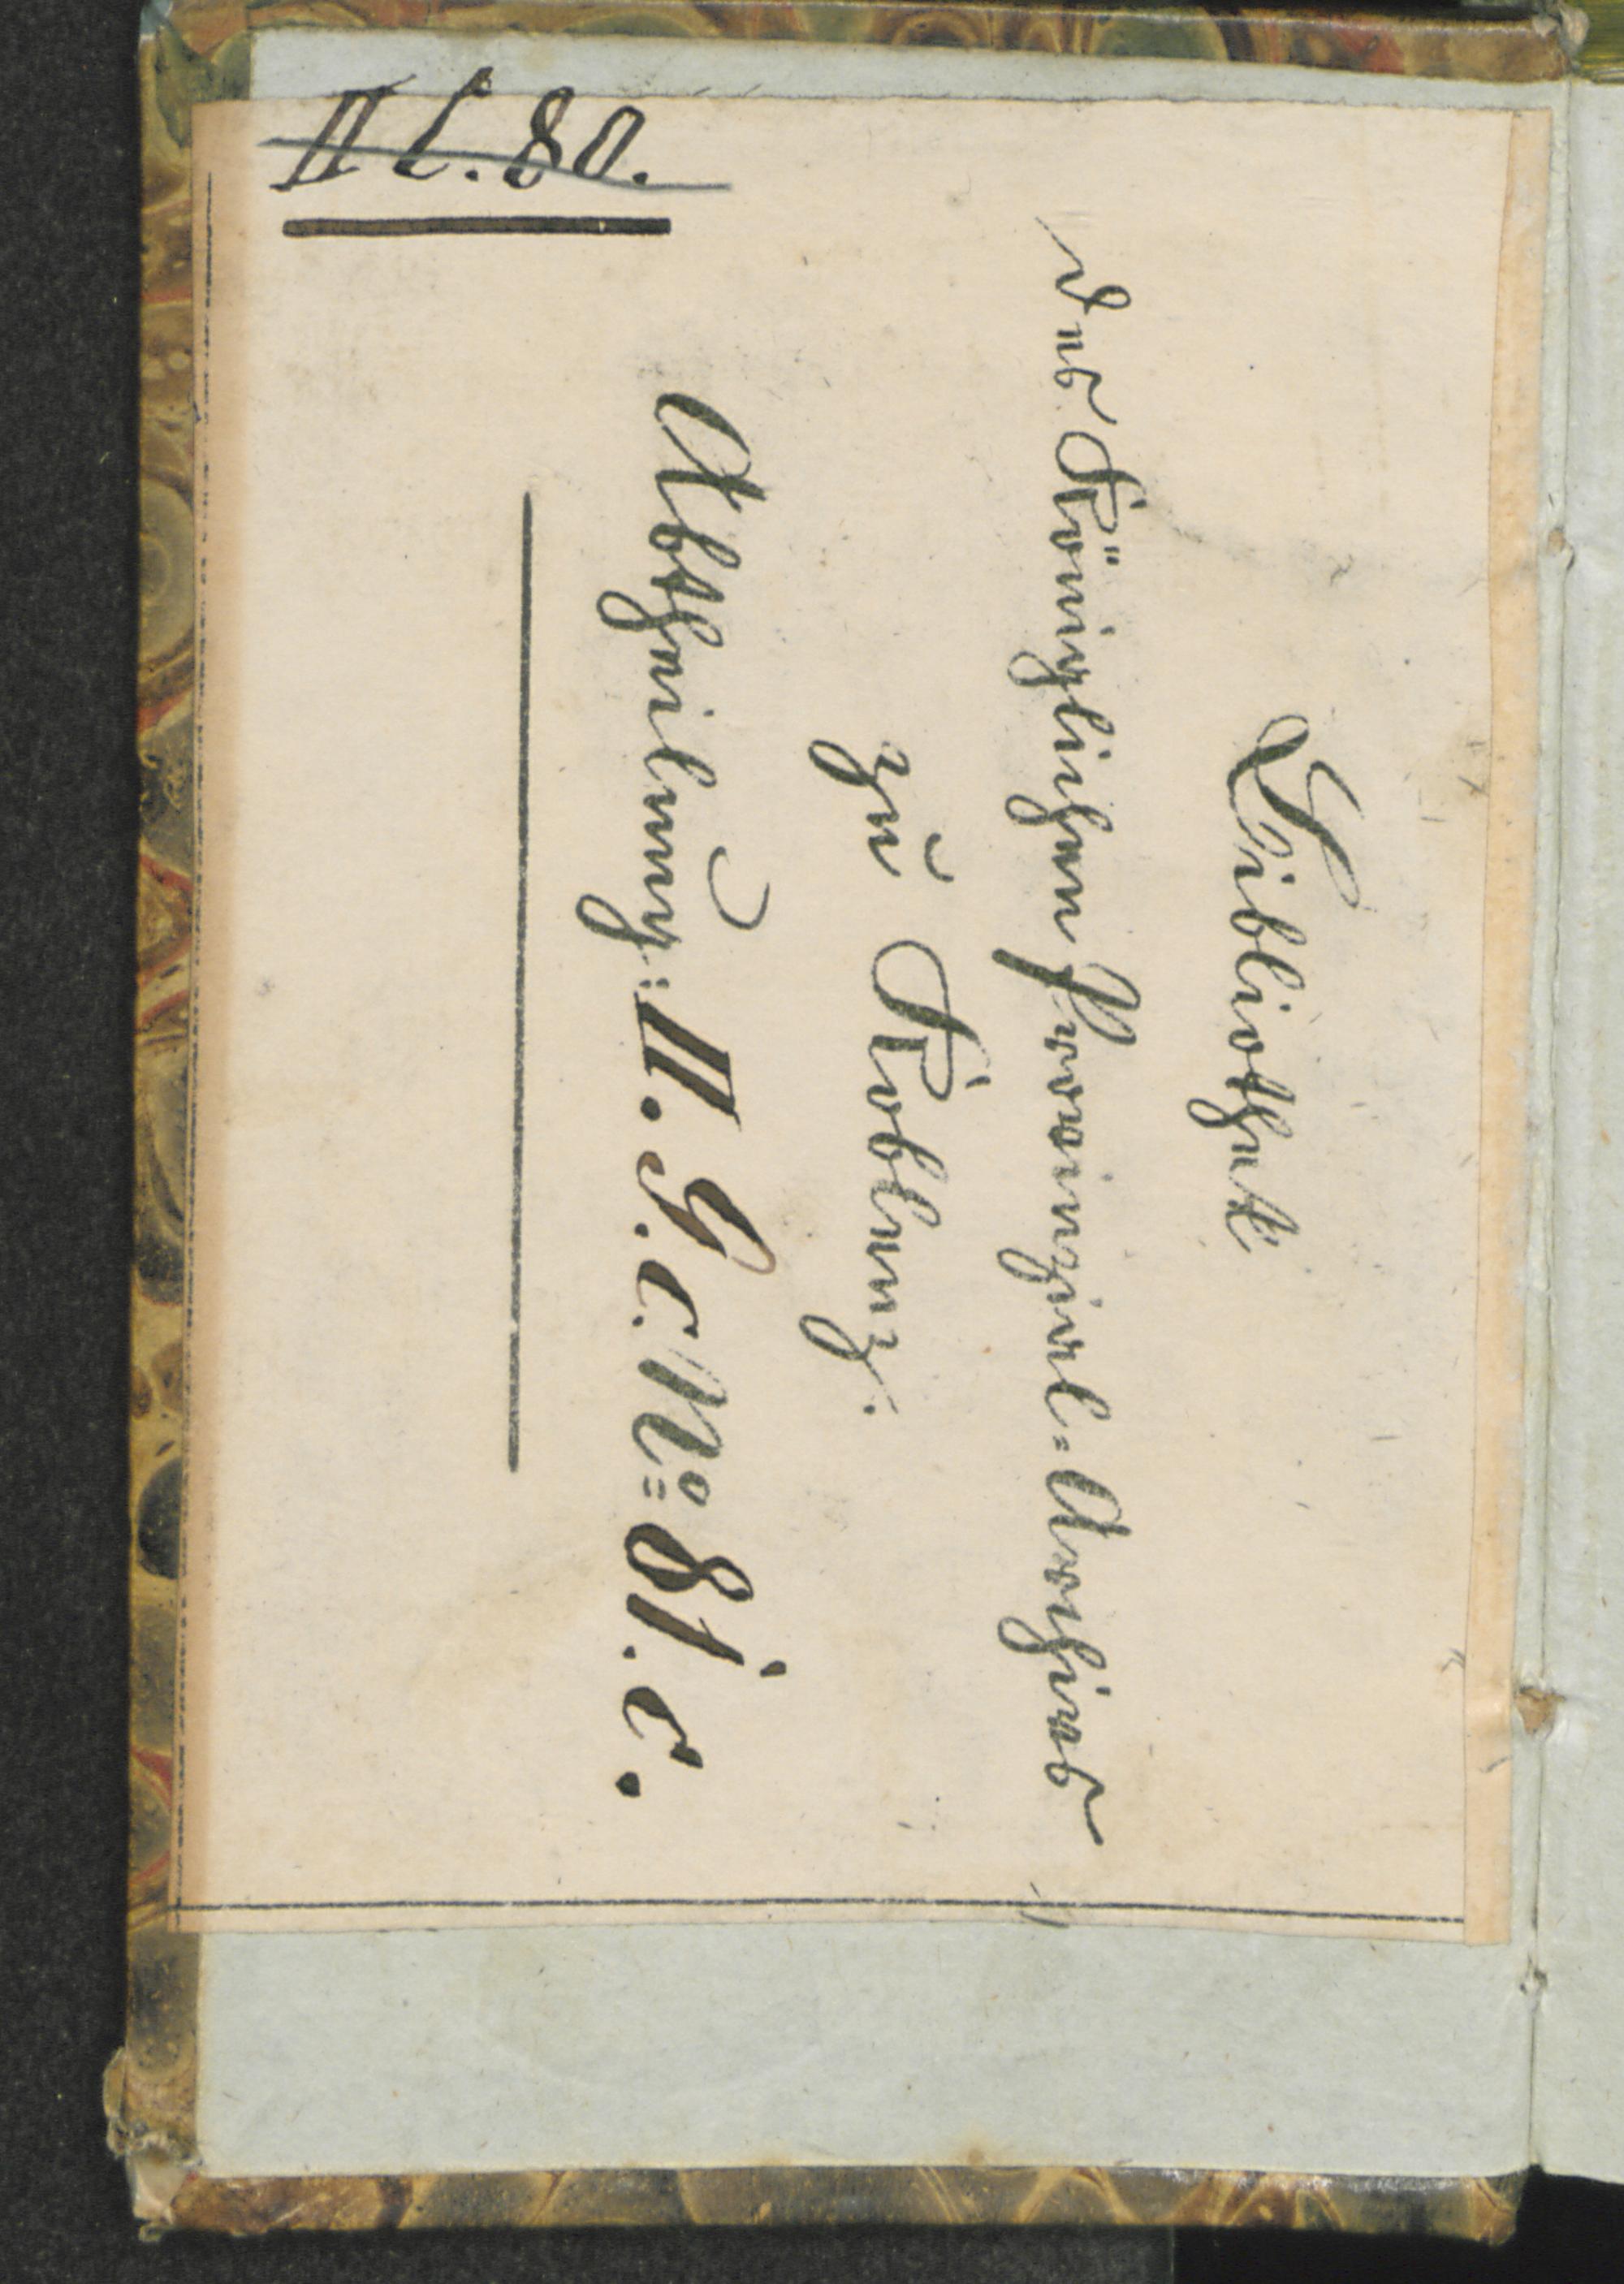 II C. 80.
Bibliothek
des Königlichen Provinzial-Archivs
zu Koblenz.
Abtheilung: II. G. c. No= 81. c.